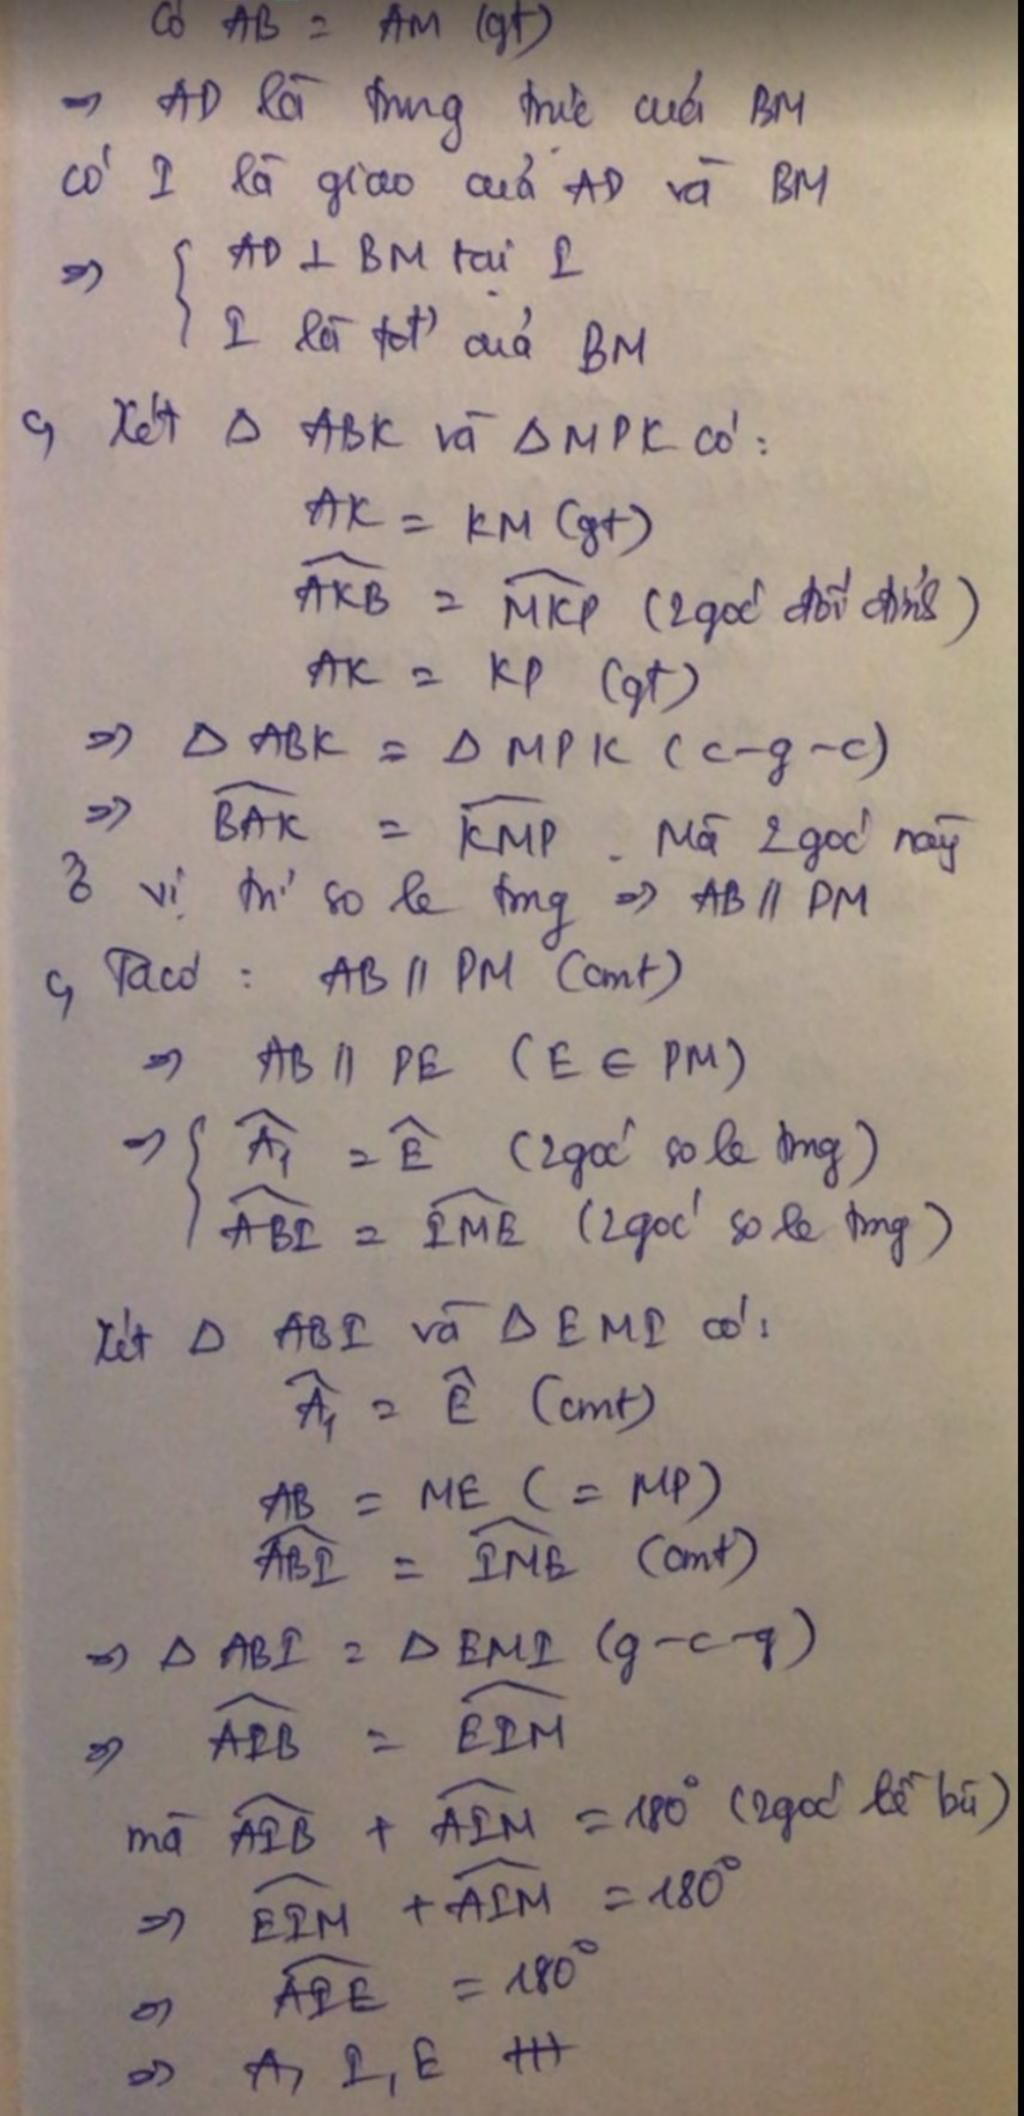 Có AB = AM (gt)
=> AD là trung trực của BM
có I là giao của AD và BM
=> { AD ⊥ BM tại I
I là tđ' của BM
c, Xét Δ ABK và Δ MPK có:
AK = KM (gt)
\widehat{AKB} = \widehat{MKP} (2 góc đối đỉnh)
AK = KP (gt)
=> Δ ABK = Δ MPK (c-g-c)
=> \widehat{BAK} = \widehat{KMP} . Mà 2 góc này
ở vị trí so le trong => AB // PM
c, Ta có : AB // PM (cmt)
=> AB // PE (E ∈ PM)
=> { \widehat{A_1} = \widehat{E} (2 góc so le trong)
\widehat{ABI} = \widehat{IME} (2 góc so le trong)
Xét Δ ABI và Δ EMI có:
\widehat{A_1} = \widehat{E} (cmt)
AB = ME (= MP)
\widehat{ABI} = \widehat{IME} (cmt)
=> Δ ABI = Δ EMI (g-c-g)
=> \widehat{AIB} = \widehat{EIM}
mà \widehat{AIB} + \widehat{AIM} = 180° (2 góc kề bù)
=> \widehat{EIM} + \widehat{AIM} = 180°
=> \widehat{AIE} = 180°
=> A, I, E